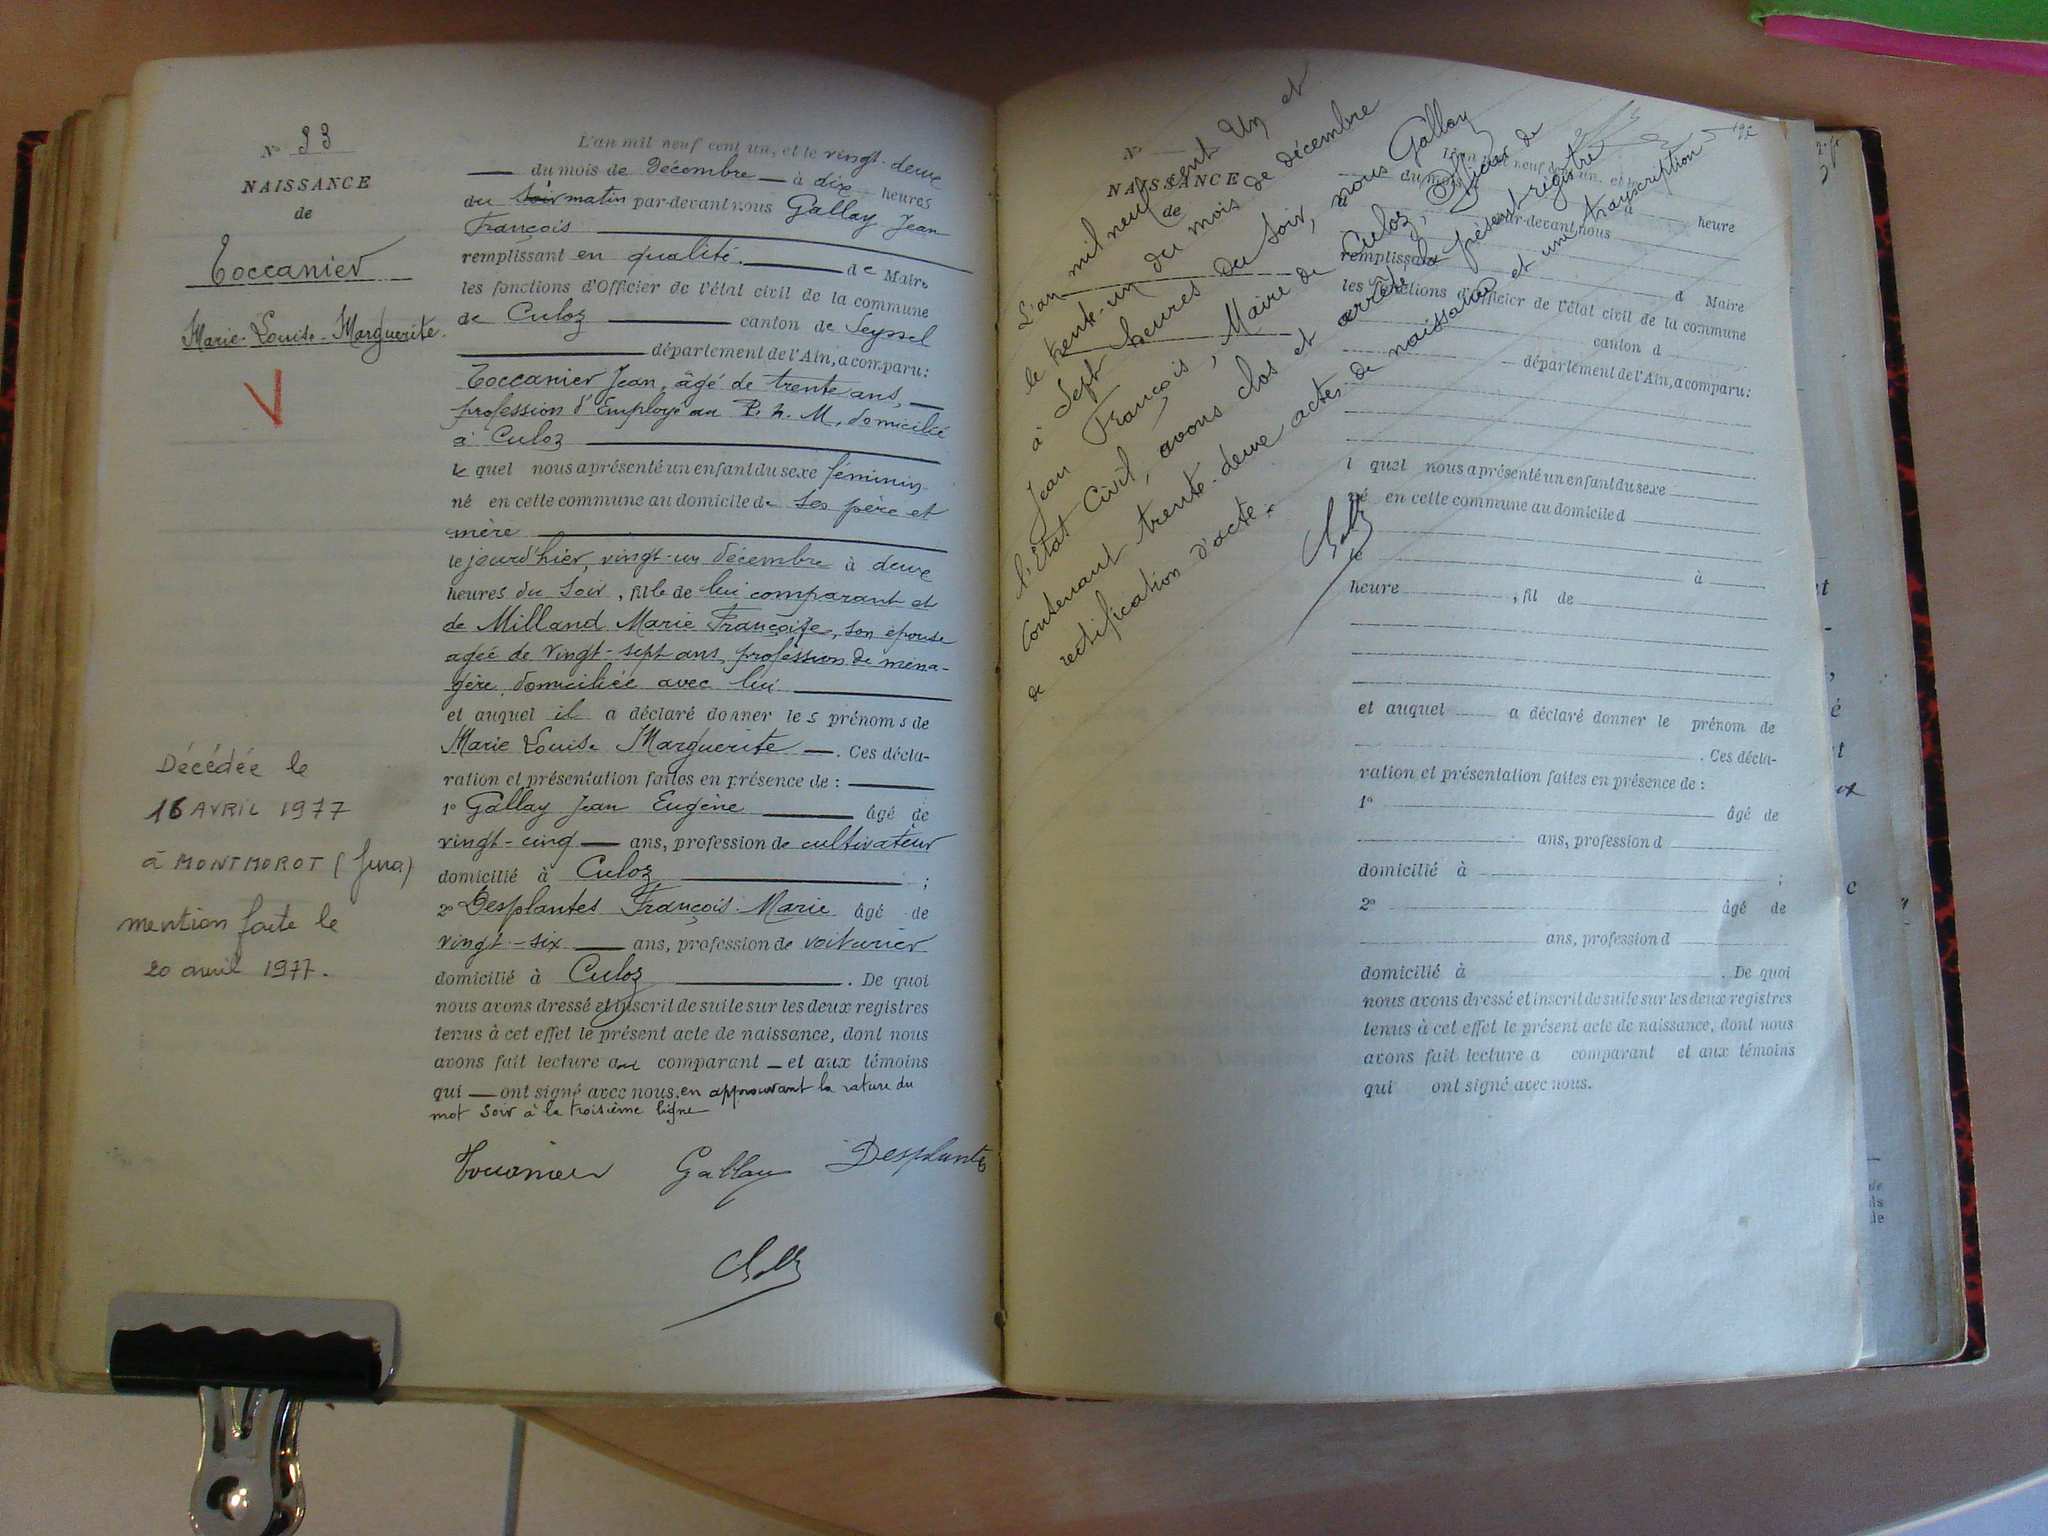 N° 33
NAISSANCE
de
Toccanier
Marie-Louise-Marguerite.
Décédée le
16 AVRIL 1977
à MONTMOROT (Jura)
mention faite le
20 avril 1977.
L'an mil neuf cent un, et le vingt-deux
du mois de Décembre à dix heures
du soir matin par-devant nous Gallay Jean
François
remplissant en qualité de Maire
les fonctions d'Officier de l'état civil de la commune
de Culoz canton de Seyssel
département de l'Ain, a comparu:
Toccanier Jean, âgé de trente ans,
profession d'Employé au P. L. M, domicilié
à Culoz
lequel nous a présenté un enfant du sexe féminin
né en cette commune au domicile de ses père et
mère
le jourd'hier, vingt-un décembre à deux
heures du soir, fille de lui comparant et
de Milland Marie Françoise, son épouse
agée de vingt-sept ans, profession de ména-
gère, domiciliée avec lui
et auquel il a déclaré donner les prénoms de
Marie Louise Marguerite. Ces décla-
ration et présentation faites en présence de :
1° Gallay Jean Eugène âgé de
vingt-cinq ans, profession de cultivateur
domicilié à Culoz ;
2° Desplantes François-Marie âgé de
vingt-six ans, profession de voiturier
domicilié à Culoz. De quoi
nous avons dressé et inscrit de suite sur les deux registres
tenus à cet effet le présent acte de naissance, dont nous
avons fait lecture au comparant et aux témoins
qui ont signé avec nous. en approuvant la rature du
mot soir à la troisième ligne
Toccanier Gallay Desplantes
L'an mil neuf cent Un et
le trente-un du mois de décembre
à Sept heures du soir, nous Gallay
Jean François, Maire de Culoz, Officier de
l'Etat Civil, avons clos et arrêté le présent registre
contenant trente-deux actes de naissance et une transcription
de rectification d'acte.
N°
NAISSANCE
de
L'an mil neuf cent un, et le
du mois d à heure
par-devant nous
remplissant d Maire
les fonctions d'Officier de l'état civil de la commune
canton d
département de l'Ain, a comparu:
l quel nous a présenté un enfant du sexe
né en cette commune au domicile d
le à
heure , fil de
et auquel a déclaré donner le prénom de
. Ces décla-
ration et présentation faites en présence de :
1° âgé de
ans, profession d
domicilié à ;
2° âgé de
ans, profession d
domicilié à . De quoi
nous avons dressé et inscrit de suite sur les deux registres
tenus à cet effet le présent acte de naissance, dont nous
avons fait lecture a comparant et aux témoins
qui ont signé avec nous.